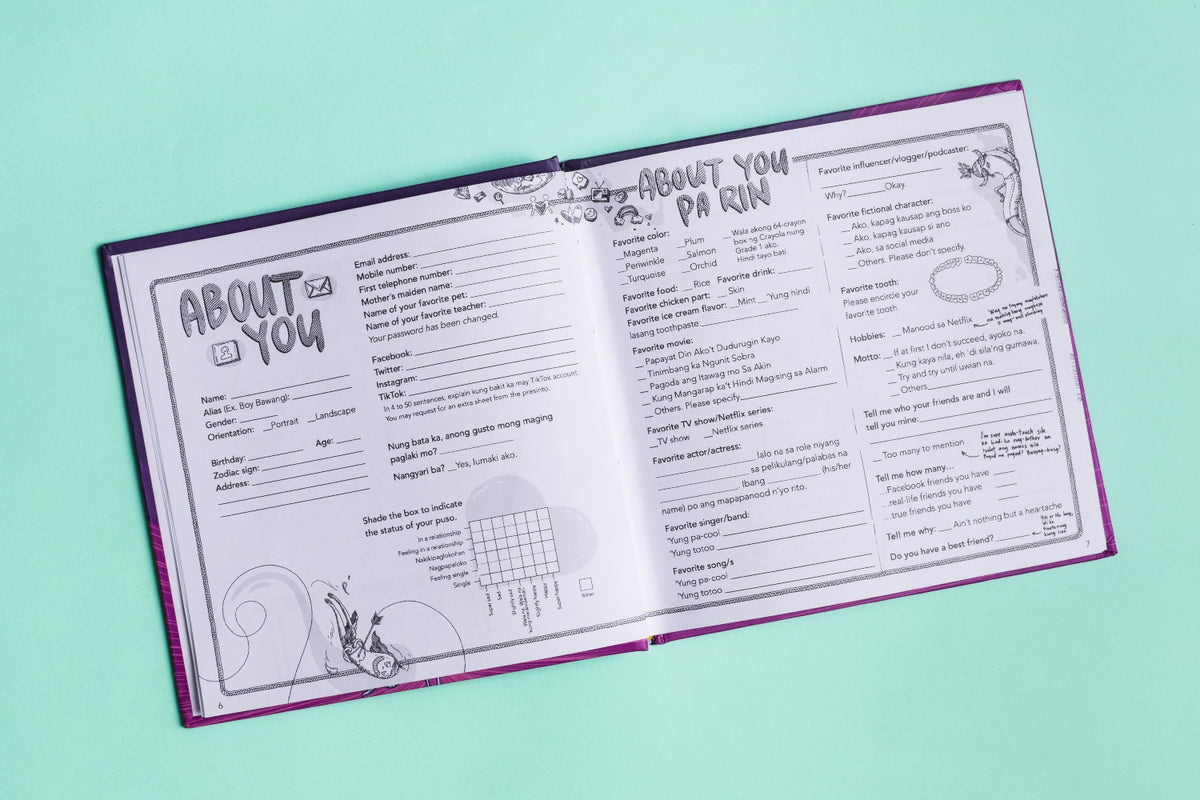 ABOUT
YOU
Name:
Alias (Ex. Boy Bawang):
Gender:
Orientation: __Portrait __Landscape
Age:
Birthday:
Zodiac sign:
Address:
Email address:
Mobile number:
First telephone number:
Mother's maiden name:
Name of your favorite pet:
Name of your favorite teacher:
Your password has been changed.
Facebook:
Twitter:
Instagram:
TikTok:
In 4 to 50 sentences, explain kung bakit ka may TikTok account.
You may request for an extra sheet from the presinto.
Nung bata ka, anong gusto mong maging
paglaki mo?
Nangyari ba? __Yes, lumaki ako.
Shade the box to indicate
the status of your puso.
In a relationship
Feeling in a relationship
Nakikipaglokohan
Nagpapaloko
Feeling single
Single
Super sad
Sad
Slightly sad
Slightly happy
Happy
Super happy
Bitter
6
ABOUT YOU
PA RIN
Favorite color:
__Magenta
__Periwinkle
__Turquoise
__Plum
__Salmon
__Orchid
__Wala akong 64-crayon
box ng Crayola nung
Grade 1 ako.
Hindi tayo bati.
Favorite food: __Rice Favorite drink:
Favorite chicken part: __Skin
Favorite ice cream flavor: __Mint __'Yung hindi
lasang toothpaste:
Favorite movie:
__Papayat Din Ako't Dudurugin Kayo
__Tinimbang ka Ngunit Sobra
__Pagoda ang Itawag mo Sa Akin
__Kung Mangarap ka't Hindi Magising sa Alarm
__Others. Please specify
Favorite TV show/Netflix series:
__TV show __Netflix series
Favorite actor/actress:
lalo na sa role niyang
sa pelikulang/palabas na
Ibang (his/her
name) po ang mapapanood n'yo rito.
Favorite singer/band:
'Yung pa-cool
'Yung totoo
Favorite song/s
'Yung pa-cool
'Yung totoo
Favorite influencer/vlogger/podcaster:
Why? Okay.
Favorite fictional character:
__Ako, kapag kausap ang boss ko
__Ako, kapag kausap si ano
__Ako, sa social media
__Others. Please don't specify.
Favorite tooth:
Please encircle your
favorite tooth
Hobbies: __Manood sa Netflix
Motto: __If at first I don't succeed, ayoko na.
__Kung kaya nila, eh 'di sila'ng gumawa.
__Try and try until uwian na.
__Others
Tell me who your friends are and I will
tell you mine:
__Too many to mention
Tell me how many...
...Facebook friends you have
...real-life friends you have
...true friends you have
Tell me why: __Ain't nothing but a heartache
Do you have a best friend?
7